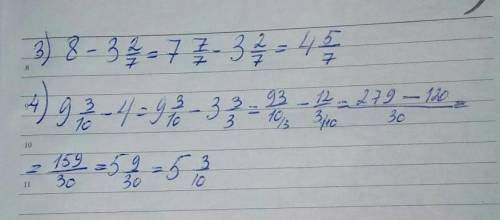 3) 8 - 3 2/7 = 7 7/7 - 3 2/7 = 4 5/7
8
4) 9 3/10 - 4 = 9 3/10 - 3 3/3 = 93/10/3 - 12/3/10 = 279 - 120/30 =
10
= 159/30 = 5 9/30 = 5 3/10
11